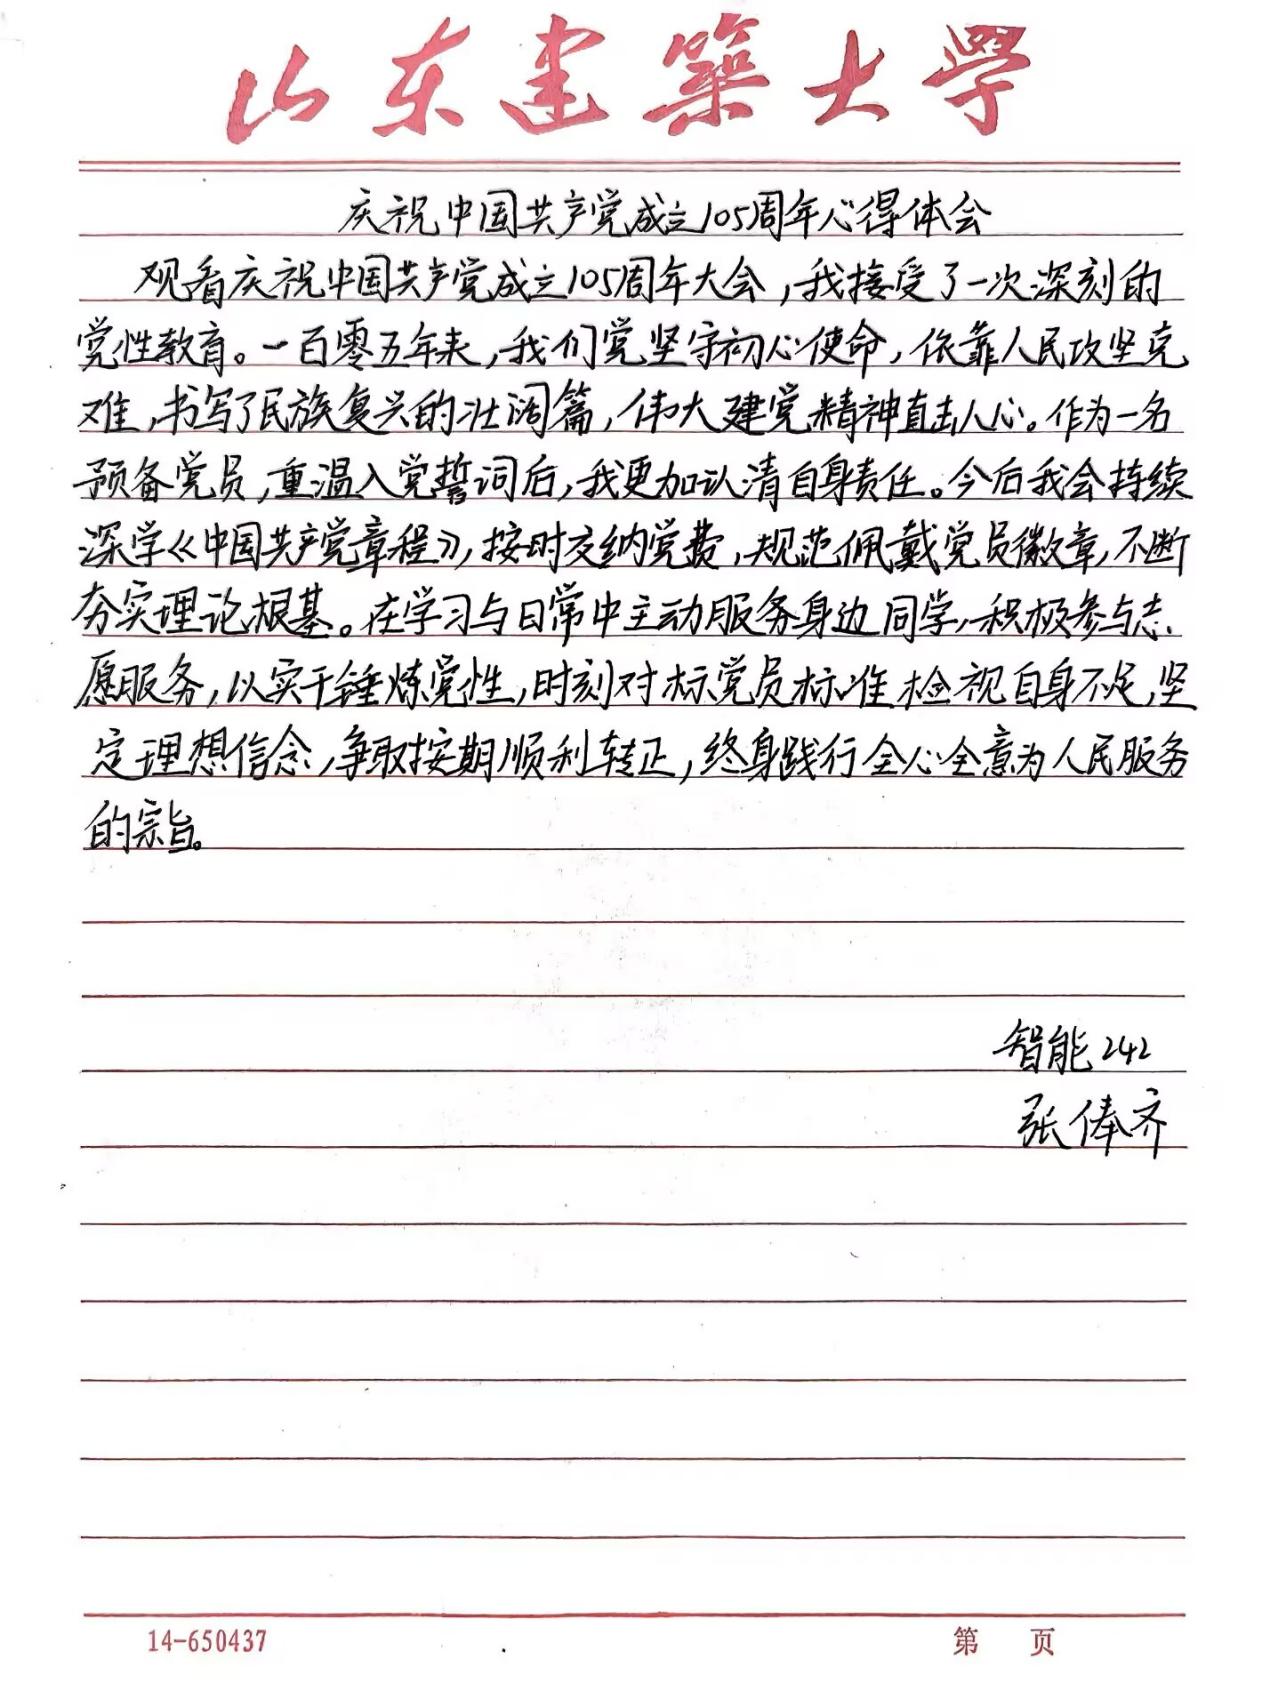 山东建築大學
庆祝中国共产党成立105周年心得体会
观看庆祝中国共产党成立105周年大会，我接受了一次深刻的
党性教育。一百零五年来，我们党坚守初心使命，依靠人民攻坚克
难，书写了民族复兴的壮阔篇，伟大建党精神直击人心。作为一名
预备党员，重温入党誓词后，我更加认清自身责任。今后我会持续
深学《中国共产党章程》，按时交纳党费，规范佩戴党员徽章，不断
夯实理论根基。在学习与日常中主动服务身边同学，积极参与志
愿服务，以实干锤炼党性，时刻对标党员标准检视自身不足，坚
定理想信念，争取按期顺利转正，终身践行全心全意为人民服务
的宗旨。
智能242
张俸齐
14-650437
第 页